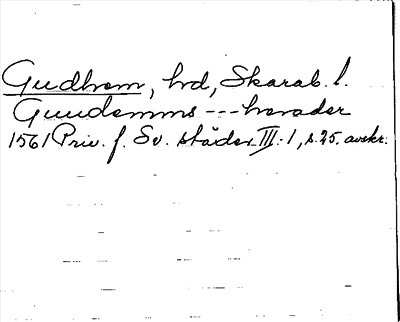 Gudhem, hd, Skarab. l.
Guudemms --- herader
1561 Priv. f. Sv. städer III:1, s. 25. avskr.